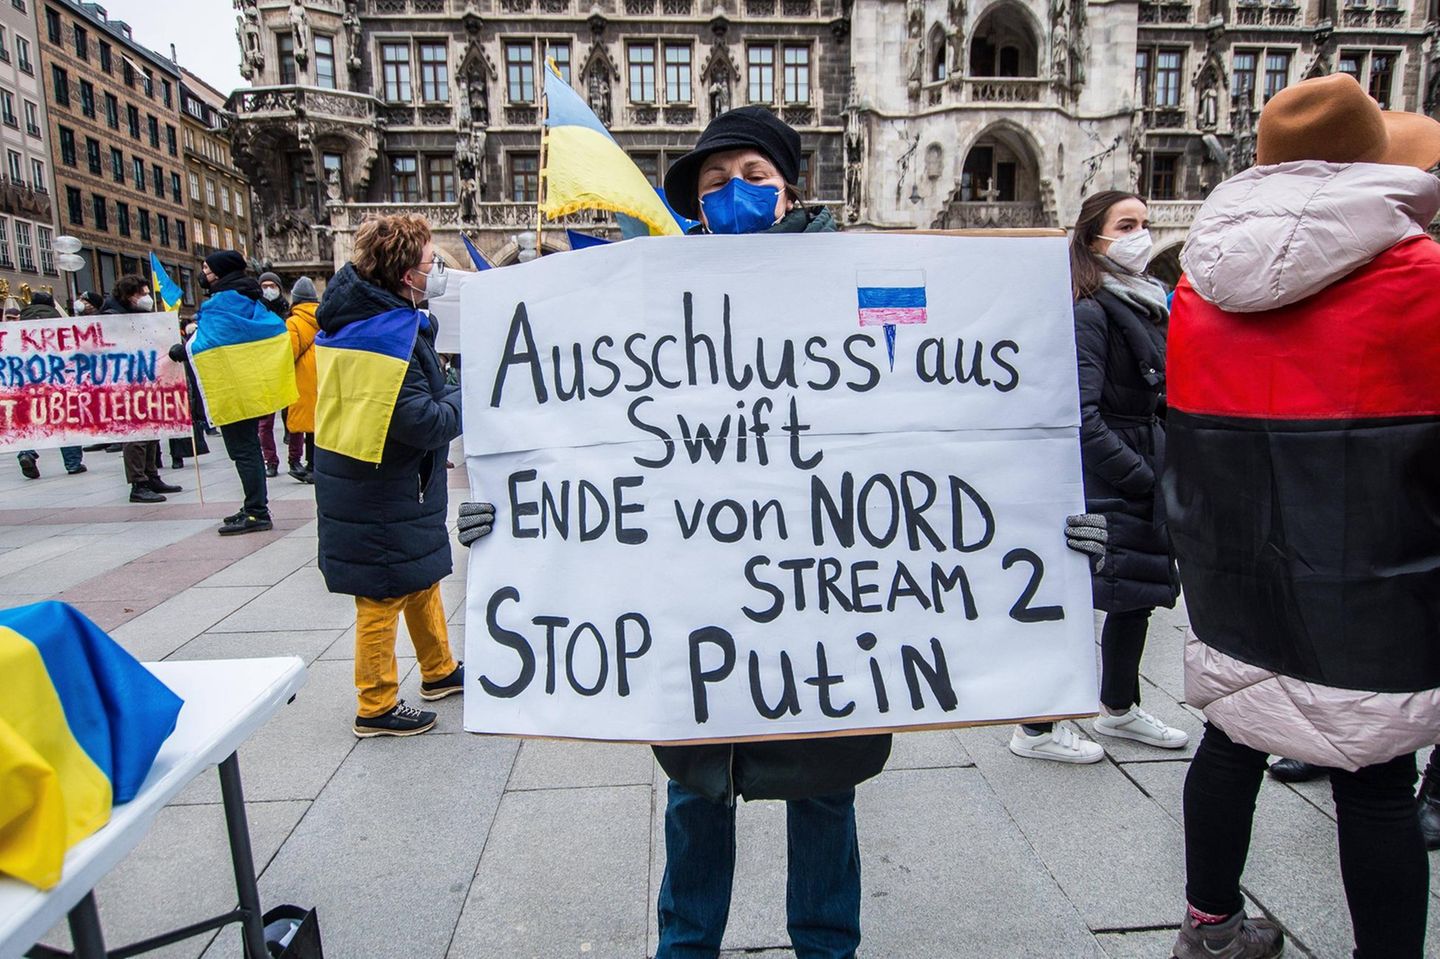 Ausschluss aus
Swift
ENDE von NORD
STREAM 2
STOP PUtiN
KREML
PUTIN
ÜBER LEICHEN